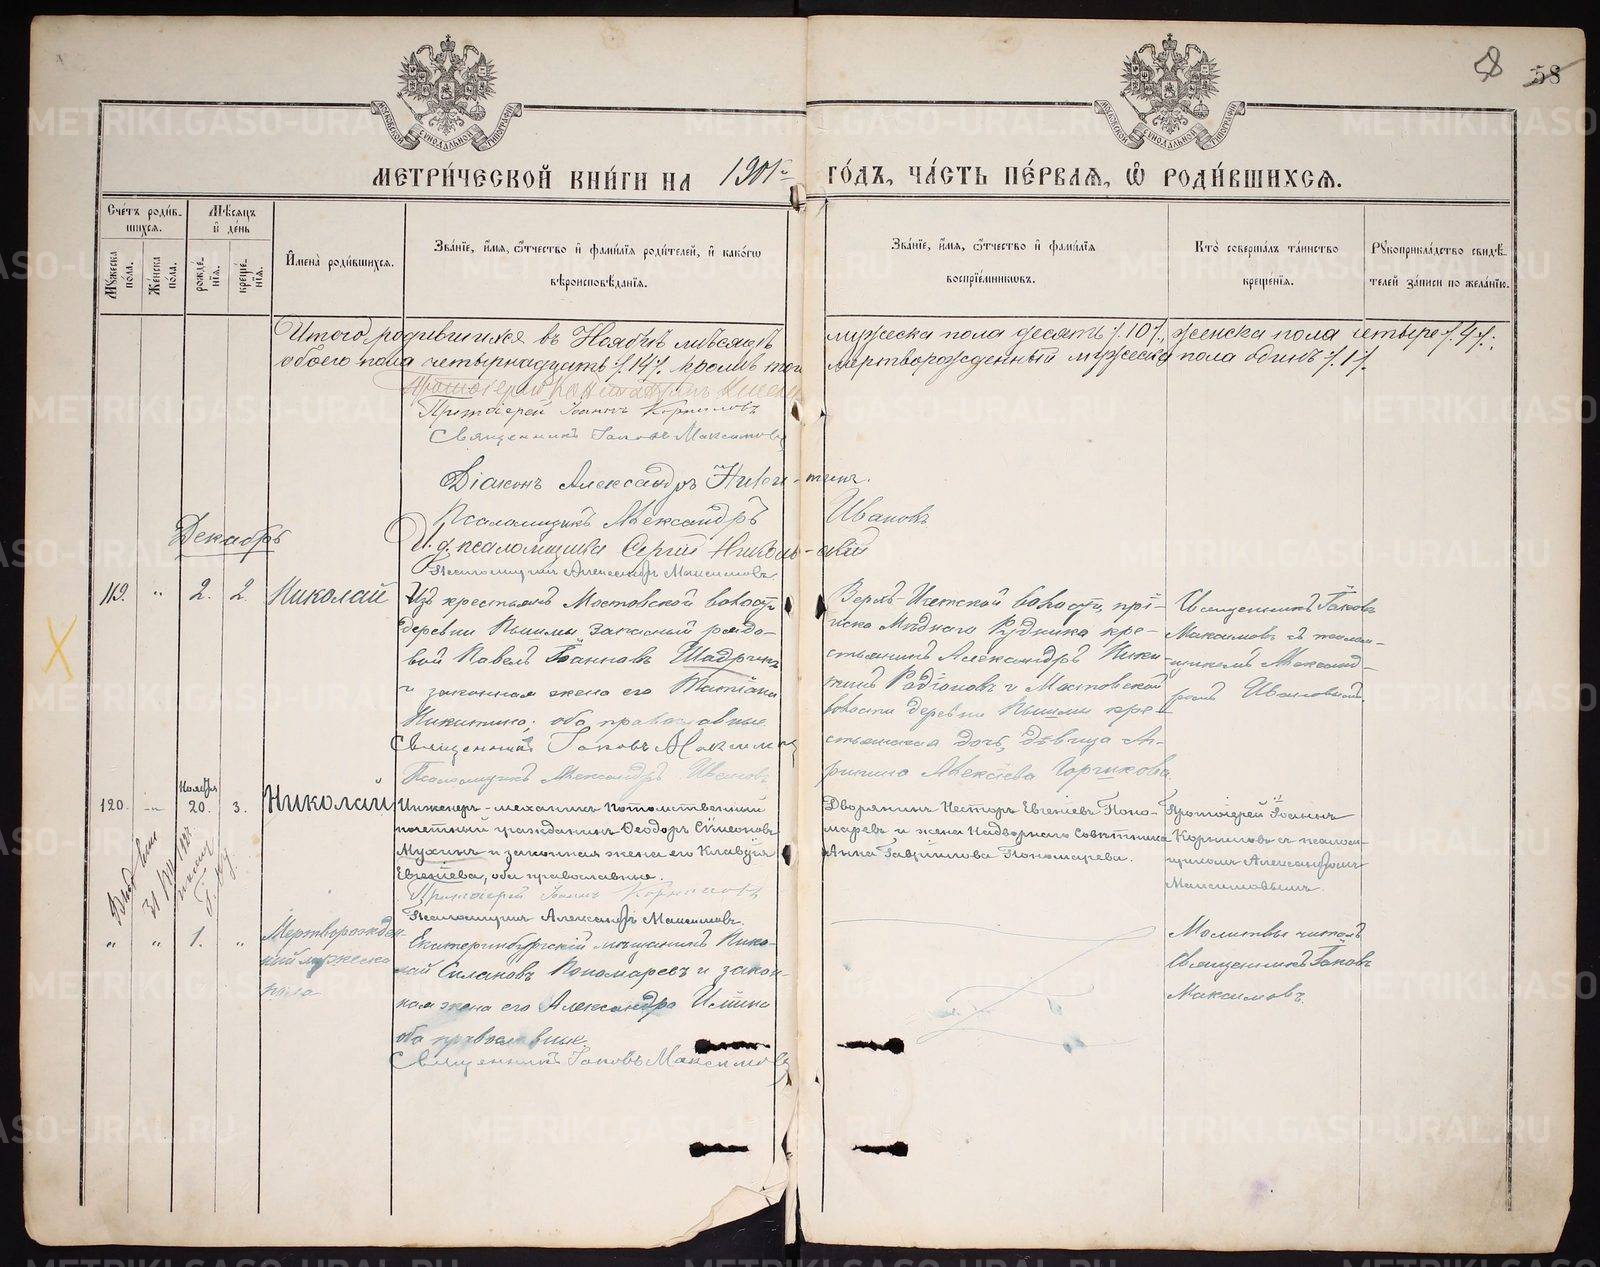 58 58
МОСКОВСКОЙ СѴНОДАЛЬНОЙ ТИПОГРАФІИ
МОСКОВСКОЙ СѴНОДАЛЬНОЙ ТИПОГРАФІИ
МЕТРИ́ЧЕСКОЙ КНИ́ГИ НА 1901й ГО́ДЪ, ЧА́СТЬ ПЕ́РВАѦ, Ѿ РОДИ́ВШИХСѦ.
Сче́тъ роди́вшихся.
Му́жеска по́ла.
Же́нска по́ла.
Мѣ́сяцъ и де́нь
рожде́нія.
креще́нія.
Имена̀ роди́вшихся.
Зва́ніе, и́мя, о́тчество и фами́лія роди́телей, и како́гѡ
вѣроисповѣ́данія.
Зва́ніе, и́мя, о́тчество и фами́лія
воспріе́мниковъ.
Кто̀ соверша́лъ та́инство
креще́нія.
Рукоприкла́дство свидѣ́-
телей за́писи по жела́нію.
Итого родившихся въ Ноябрѣ мѣсяцѣ мужеска пола десять /.10/., женска пола четыре /.4/.;
обоего пола четырнадцать /.14/. кромѣ того мертворожденный мужеска пола одинъ /.1/.
Протоіерей Іоаннъ Корниловъ
Священникъ Іаковъ Максимовъ
Діаконъ Александръ Никитинъ.
Псаломщикъ Александръ Ивановъ
И. д. псаломщика Сергій
Псаломщикъ Александръ Максимовъ.
Декабрь
119. " 2. 2. Николай
Изъ крестьянъ Мостовской волости
деревни Пышмы, запасный рядо-
вой Павелъ Іоанновъ Шадринъ
и законная жена его Татіана
Никитина; оба православные.
Священникъ Іаковъ Максимовъ
Псаломщикъ Александръ Ивановъ
Верхъ-Исетской волости, прі-
иска Мѣднаго Рудника кре-
стьянинъ Александръ Ники-
тинъ Родіоновъ и Мостовской
волости деревни Пышмы кре-
стьянская дочь, дѣвица Ѳ-
Алексіева Горчикова.
Священникъ Іаковъ
Максимовъ съ псалом-
щикомъ Александ-
ромъ Ивановымъ.
120. -"- Ноября 20. 3. Николай
Инженеръ-механикъ потомственный
почетный гражданинъ Ѳеодоръ Сѵмеоновъ
Мухинъ и законная жена его Клавдія
Евгеніева, оба православные.
Протоіерей Іоаннъ Корниловъ
Псаломщикъ Александръ Максимовъ.
Дворянинъ Несторъ Евгеніевъ Поно-
маревъ и жена Надворнаго Совѣтника
Анна Гавріилова Пономарева.
Протоіерей Іоаннъ
Корниловъ съ псалом-
щикомъ Александромъ
Максимовымъ.
" " 1. " Мертворожден-
ный мужеска
пола
Екатеринбургскій мѣщанинъ Нико-
лай Силановъ Пономаревъ и закон-
ная жена его Александра Ильина
оба православные.
Священникъ Іаковъ Максимовъ
Молитвы читалъ
Священникъ Іаковъ
Максимовъ.
METRIKI.GASO-URAL.RU